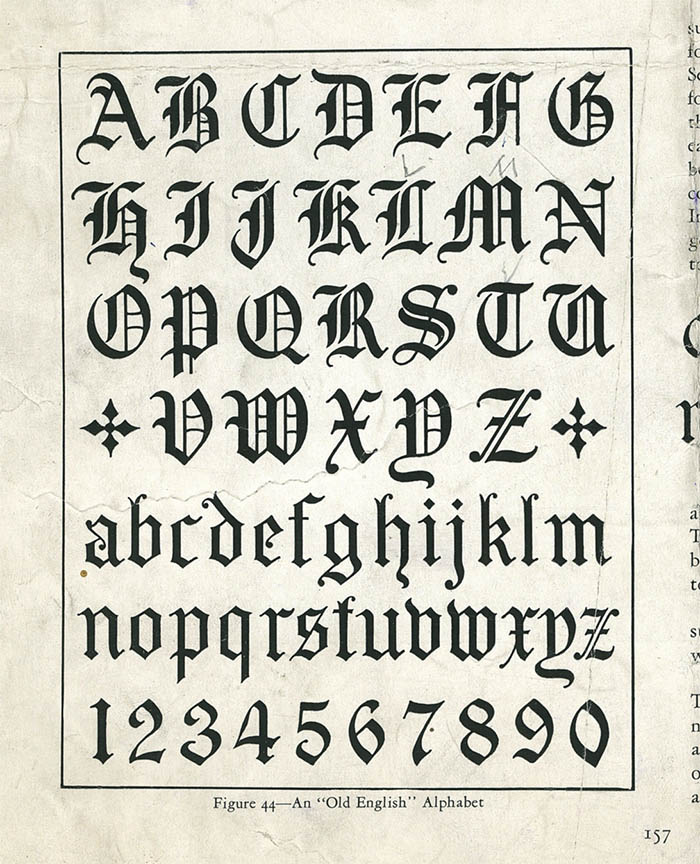 A B C D E F G
H I J K L M N
O P Q R S T U
V W X Y Z
a b c d e f g h i j k l m
n o p q r s t u v w x y z
1 2 3 4 5 6 7 8 9 0
Figure 44—An “Old English” Alphabet
157